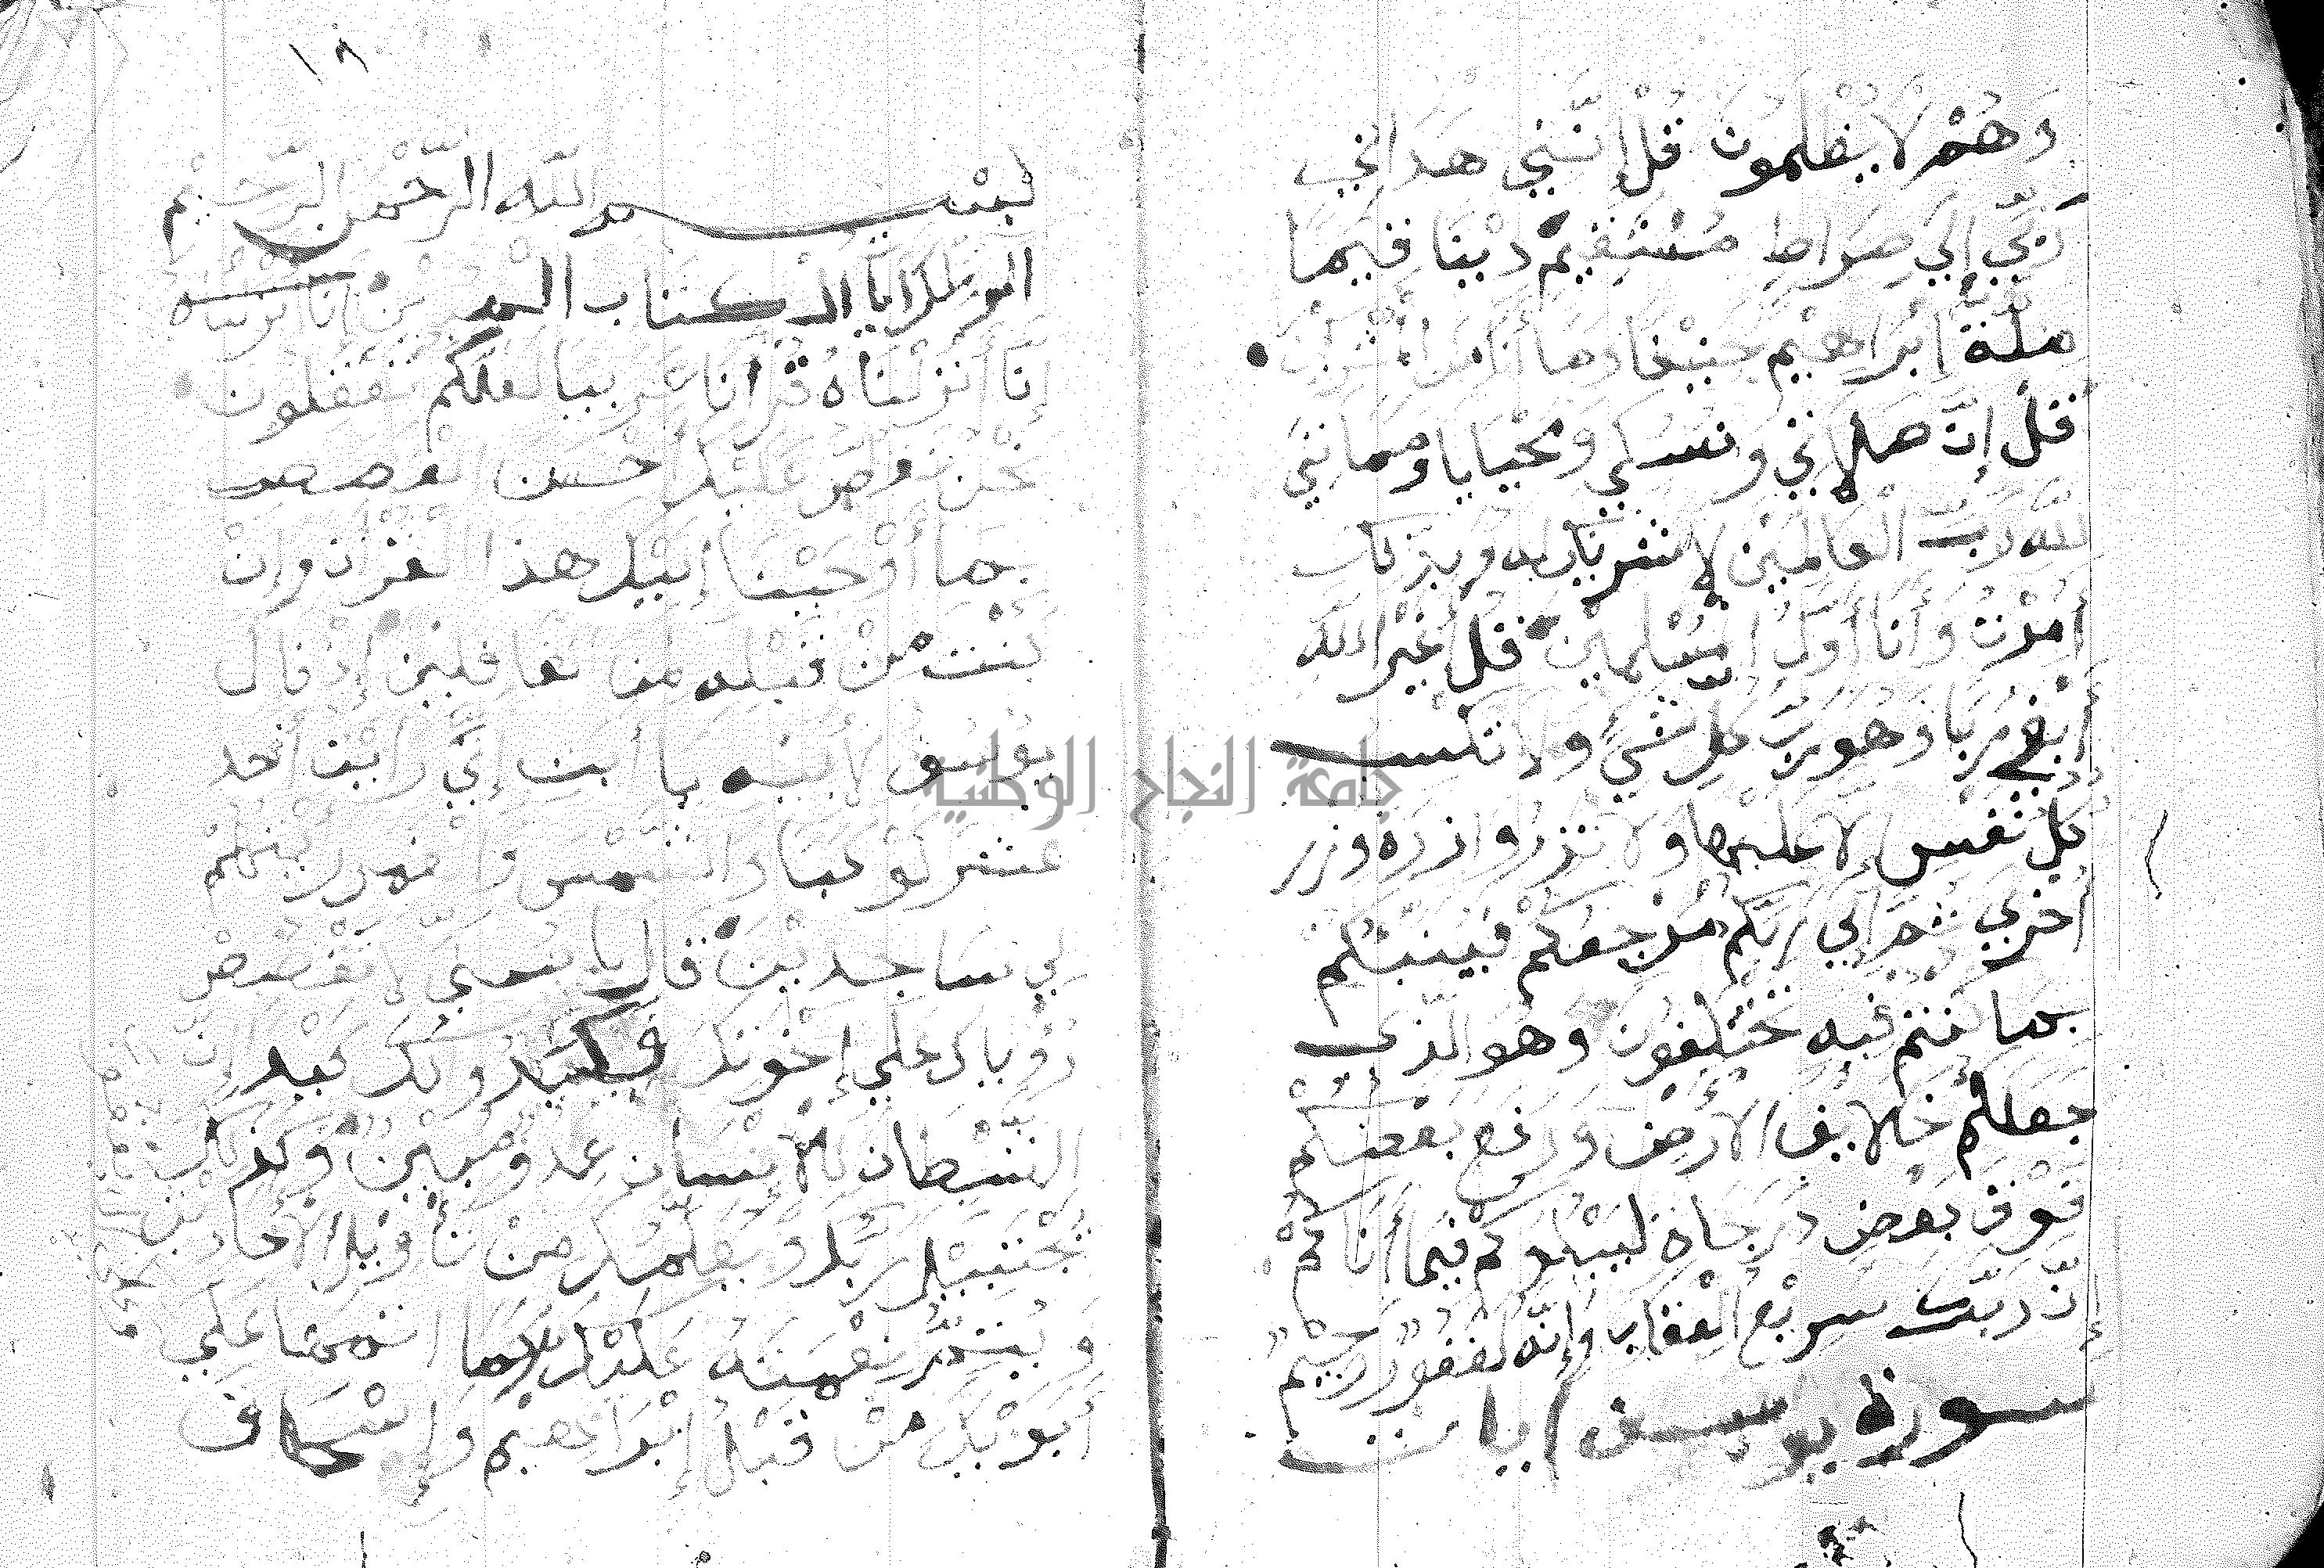 وَهُمْ لَا يُظْلَمُونَ قُلْ إِنَّنِي هَدَانِي
رَبِّي إِلَى صِرَاطٍ مُسْتَقِيمٍ دِينًا قِيَمًا
مِلَّةَ إِبْرَاهِيمَ حَنِيفًا وَمَا
قُلْ إِنَّ صَلَاتِي وَنُسُكِي وَمَحْيَايَا وَمَمَاتِي
لِلَّهِ رَبِّ الْعَالَمِينَ لَا شَرِيكَ لَهُ وَبِذَلِكَ
أُمِرْتُ وَأَنَا أَوَّلُ الْمُسْلِمِينَ قُلْ أَغَيْرَ اللَّهِ
أَبْغِي رَبًّا وَهُوَ رَبُّ كُلِّ شَيْءٍ وَلَا تَكْسِبُ
كُلُّ نَفْسٍ إِلَّا عَلَيْهَا وَلَا تَزِرُ وَازِرَةٌ وِزْرَ
أُخْرَى ثُمَّ إِلَى رَبِّكُمْ مَرْجِعُكُمْ فَيُنَبِّئُكُمْ
بِمَا كُنْتُمْ فِيهِ تَخْتَلِفُونَ وَهُوَ الَّذِي
جَعَلَكُمْ خَلَايِفَ الْأَرْضِ وَرَفَعَ بَعْضَكُمْ
فَوْقَ بَعْضٍ دَرَجَاةٍ لِيَبْلُوَكُمْ فِيمَا أَتَاكُمْ
إِنَّ رَبَّكَ سَرِيعُ الْعِقَابِ وَإِنَّهُ لَغَفُورٌ رَحِيمٌ
سورة يوسف
١٨
بسم الله الرَّحْمن الرَّحيم
الر تلك ايات الكتاب المبين
إِنَّا أَنْزَلْنَاهُ قُرْأَنًا عَرَبِيًّا لَعَلَّكُمْ تَعْقِلُونَ
نَحْنُ نَقُصُّ عَلَيْكَ أَحْسَنَ القصص
بِمَا أَوْحَيْنَا إِلَيْكَ هذا القرأن وَإِنْ
كُنْتَ مِنْ قَبْلِهِ لمن الغافلين إِذْ قال
يُوسُفُ لِأَبِيهِ يَا أَبَتِ إِنِّي رَأَيْتُ أَحَدَ
عشر كَوْكَبًا وَالشَّمْسَ وَالقمر رَأَيْتُهُمْ
لِي سَاجِدِينَ قَالَ يَا بُنَيَّ لَا تَقْصُصْ
رُؤْيَاكَ عَلَى إِخْوَتِكَ فَيَكِيدُوا لَكَ كَيْدًا إِنَّ
الشَّيْطَانَ لِلْإِنْسَانِ عَدُوٌّ مُبِينٌ وَكَذَلِكَ
يَجْتَبِيكَ رَبُّكَ وَيُعَلِّمُكَ مِنْ تَأْوِيلِ الْأَحَادِيثِ
وَيُتِمُّ نِعْمَتَهُ عَلَيْكَ كَمَا أتمها عَلَى
أَبَوَيْكَ مِنْ قَبْلُ إِبْرَاهِيمَ وَإِسْحَاقَ
جامعة النجاح الوطنية